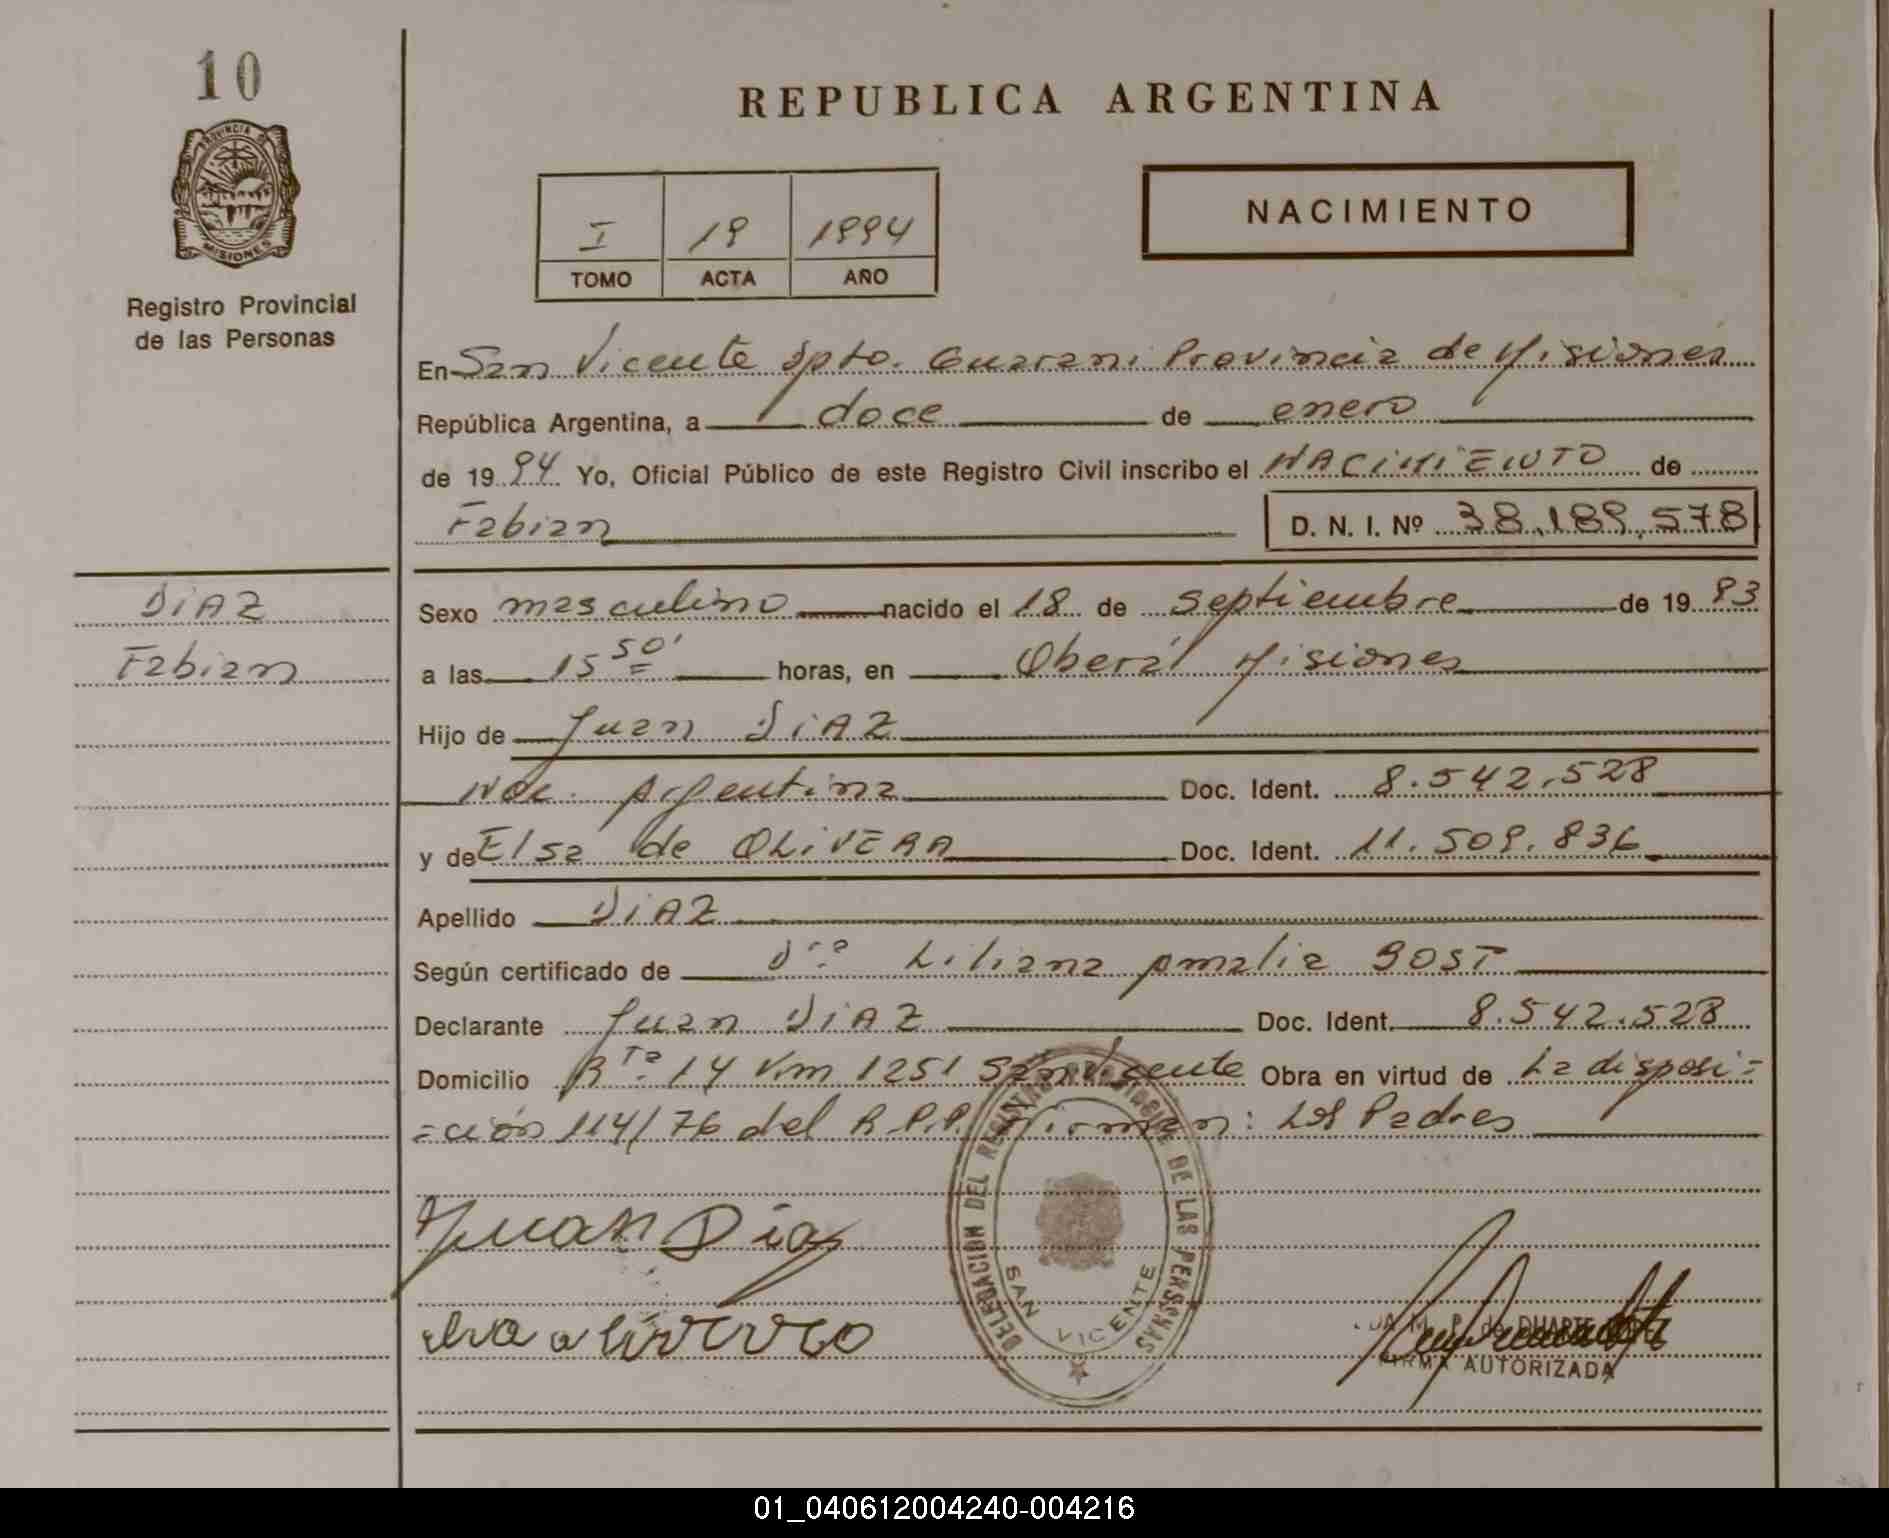 10
REPUBLICA ARGENTINA
PROVINCIA DE MISIONES
Registro Provincial
de las Personas
I 19 1994
TOMO ACTA AÑO
NACIMIENTO
En San Vicente Dpto. Guarani Provincia de Misiones
República Argentina, a doce de enero
de 19 94 Yo, Oficial Público de este Registro Civil inscribo el NACIMIENTO de
Fabian D. N. I. Nº 38.189.578
DIAZ
Fabian
Sexo masculino nacido el 18 de septiembre de 19 93
a las 15 50' horas, en Oberá Misiones
Hijo de Juan DIAZ
Nac. Argentina Doc. Ident. 8.542.528
y de Elsa de OLIVERA Doc. Ident. 11.509.836
Apellido DIAZ
Según certificado de Dra. Liliana Amalia BOST
Declarante Juan DIAZ Doc. Ident. 8.542.528
Domicilio Rta. 14 Km 1251 San Vicente Obra en virtud de La disposi=
=ción 114/76 del R.P.P. Firman: Los Padres
Juan Diaz
DELEGACION DEL REGISTRO PROVINCIAL DE LAS PERSONAS
SAN VICENTE
DUARTE
FIRMA AUTORIZADA
01_040612004240-004216